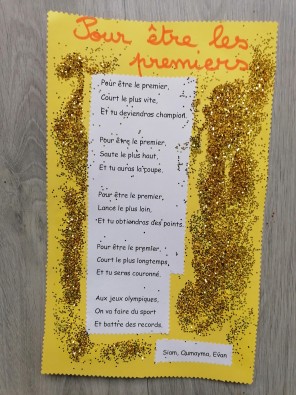 Pour être les
premiers
Pour être le premier,
Court le plus vite,
Et tu deviendras champion.
Pour être le premier,
Saute le plus haut,
Et tu auras la coupe.
Pour être le premier,
Lance le plus loin,
Et tu obtiendras des points.
Pour être le premier,
Court le plus longtemps,
Et tu seras couronné.
Aux jeux olympiques,
On va faire du sport
Et battre des records.
Siam, Qumayma, Evan